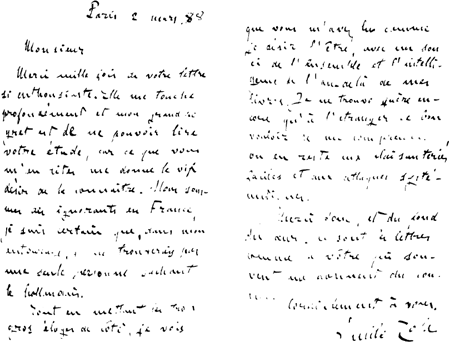 Paris 2 mars 88
Monsieur
Merci mille fois de votre lettre
si enthousiaste. Elle me touche
profondément et mon grand re
gret est de ne pouvoir lire
votre étude, car ce que vous
m'en dites me donne le vif
désir de la connaître. Nous som-
mes des ignorants en France,
je suis certain que, dans mon
entourage, je ne trouverais pas
une seule personne sachant
le hollandais.
Tout en mettant les trop
gros éloges de côté, je vois
que vous m'avez lu comme
je désire l'être, avec un sou
ci de l'ensemble et l'intelli-
gence de l'au-delà de mes
livres. Je ne trouve guère en-
core qu'à l'étranger ce
vouloir de me comprendre,
on en reste aux plaisanteries
faciles et aux attaques systé-
matiques.
Merci donc, et du fond
du cœur, ce sont des lettres
comme la vôtre qui sou-
vent me donnent du cou-
rage.
Cordialement à vous.
Emile Zola